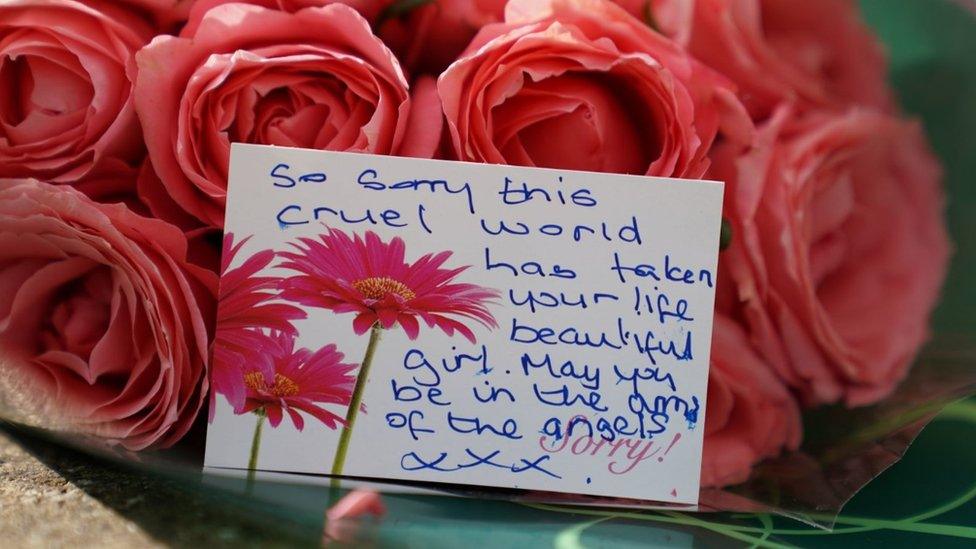 So sorry this
cruel world
has taken
your life
beautiful
girl. May you
be in the arms
of the angels
Sorry!
xxx